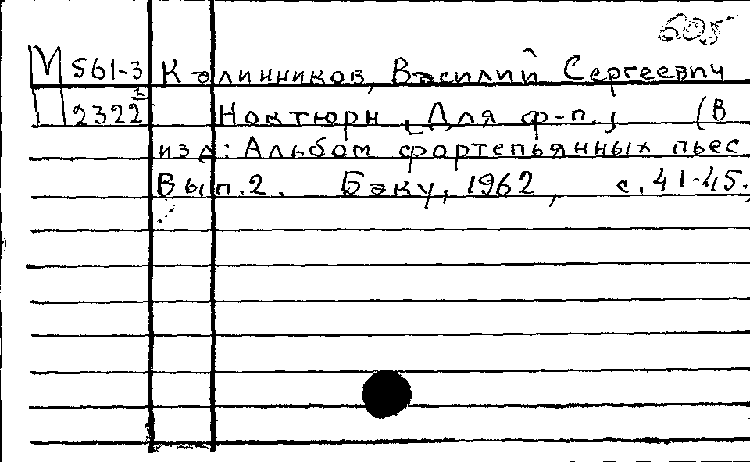 605
М 561-3 Калинников, Василий Сергеевич
2322 Ноктюрн [Для ф-п.] (В
изд: Альбом фортепьянных пьес
Вып. 2. Баку, 1962, с. 41-45.